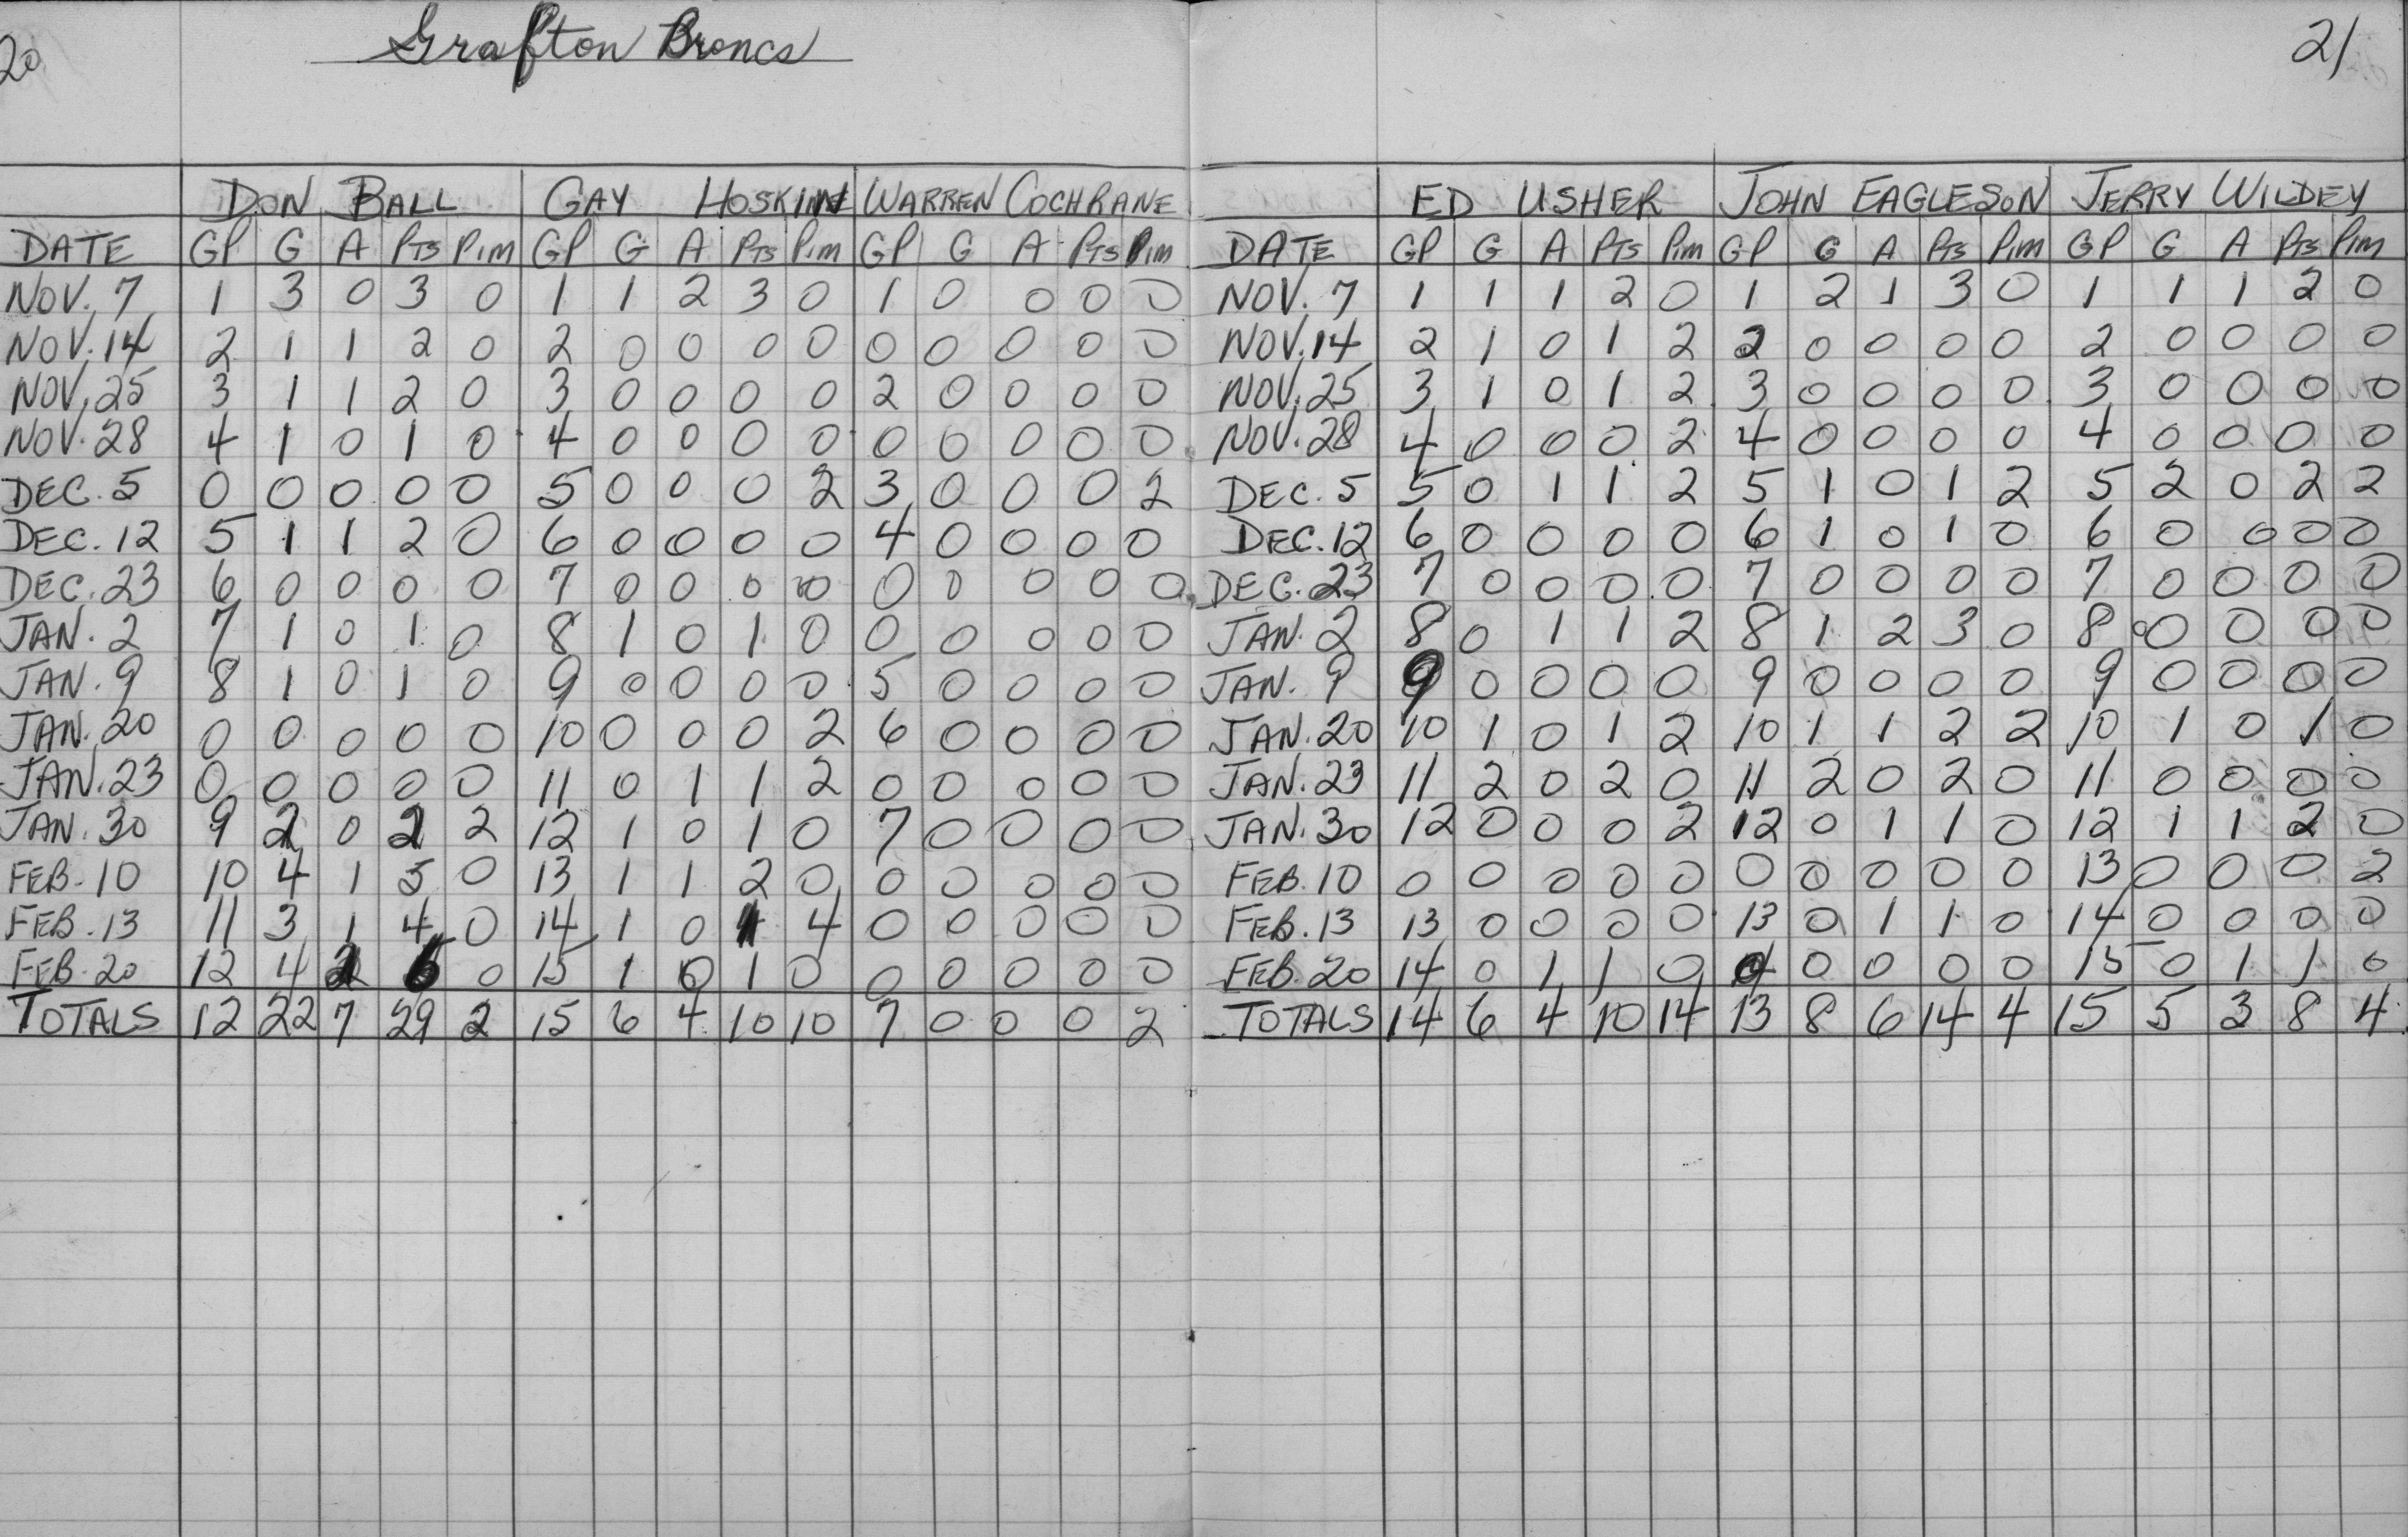 20
Grafton Broncs
DON BALL GAY HOSKINN WARREN COCHRANE
DATE GP G A PTS PIM GP G A PTS PIM GP G A PTS PIM
NOV. 7 1 3 0 3 0 1 1 2 3 0 1 0 0 0 0
NOV. 14 2 1 1 2 0 2 0 0 0 0 0 0 0 0 0
NOV. 25 3 1 1 2 0 3 0 0 0 0 2 0 0 0 0
NOV. 28 4 1 0 1 0 4 0 0 0 0 0 0 0 0 0
DEC. 5 0 0 0 0 0 5 0 0 0 2 3 0 0 0 2
DEC. 12 5 1 1 2 0 6 0 0 0 0 4 0 0 0 0
DEC. 23 6 0 0 0 0 7 0 0 0 0 0 0 0 0 0
JAN. 2 7 1 0 1 0 8 1 0 1 0 0 0 0 0 0
JAN. 9 8 1 0 1 0 9 0 0 0 0 5 0 0 0 0
JAN. 20 0 0 0 0 0 10 0 0 0 2 6 0 0 0 0
JAN. 23 0 0 0 0 0 11 0 1 1 2 0 0 0 0 0
JAN. 30 9 2 0 2 2 12 1 0 1 0 7 0 0 0 0
FEB. 10 10 4 1 5 0 13 1 1 2 0 0 0 0 0 0
FEB. 13 11 3 1 4 0 14 1 0 1 4 0 0 0 0 0
FEB. 20 12 4 2 6 0 15 1 0 1 0 0 0 0 0 0
TOTALS 12 22 7 29 2 15 6 4 10 10 7 0 0 0 2
21
ED USHER JOHN EAGLESON JERRY WILDEY
DATE GP G A PTS PIM GP G A PTS PIM GP G A PTS PIM
NOV. 7 1 1 1 2 0 1 2 1 3 0 1 1 1 2 0
NOV. 14 2 1 0 1 2 2 0 0 0 0 2 0 0 0 0
NOV. 25 3 1 0 1 2 3 0 0 0 0 3 0 0 0 0
NOV. 28 4 0 0 0 2 4 0 0 0 0 4 0 0 0 0
DEC. 5 5 0 1 1 2 5 1 0 1 2 5 2 0 2 2
DEC. 12 6 0 0 0 0 6 1 0 1 0 6 0 0 0 0
DEC. 23 7 0 0 0 0 7 0 0 0 0 7 0 0 0 0
JAN. 2 8 0 1 1 2 8 1 2 3 0 8 0 0 0 0
JAN. 9 9 0 0 0 0 9 0 0 0 0 9 0 0 0 0
JAN. 20 10 1 0 1 2 10 1 1 2 2 10 1 0 1 0
JAN. 23 11 2 0 2 0 11 2 0 2 0 11 0 0 0 0
JAN. 30 12 0 0 0 2 12 0 1 1 0 12 1 1 2 0
FEB. 10 0 0 0 0 0 0 0 0 0 0 13 0 0 0 2
FEB. 13 13 0 0 0 0 13 0 1 1 0 14 0 0 0 0
FEB. 20 14 0 1 1 0 0 0 0 0 0 15 0 1 1 0
TOTALS 14 6 4 10 14 13 8 6 14 4 15 5 3 8 4